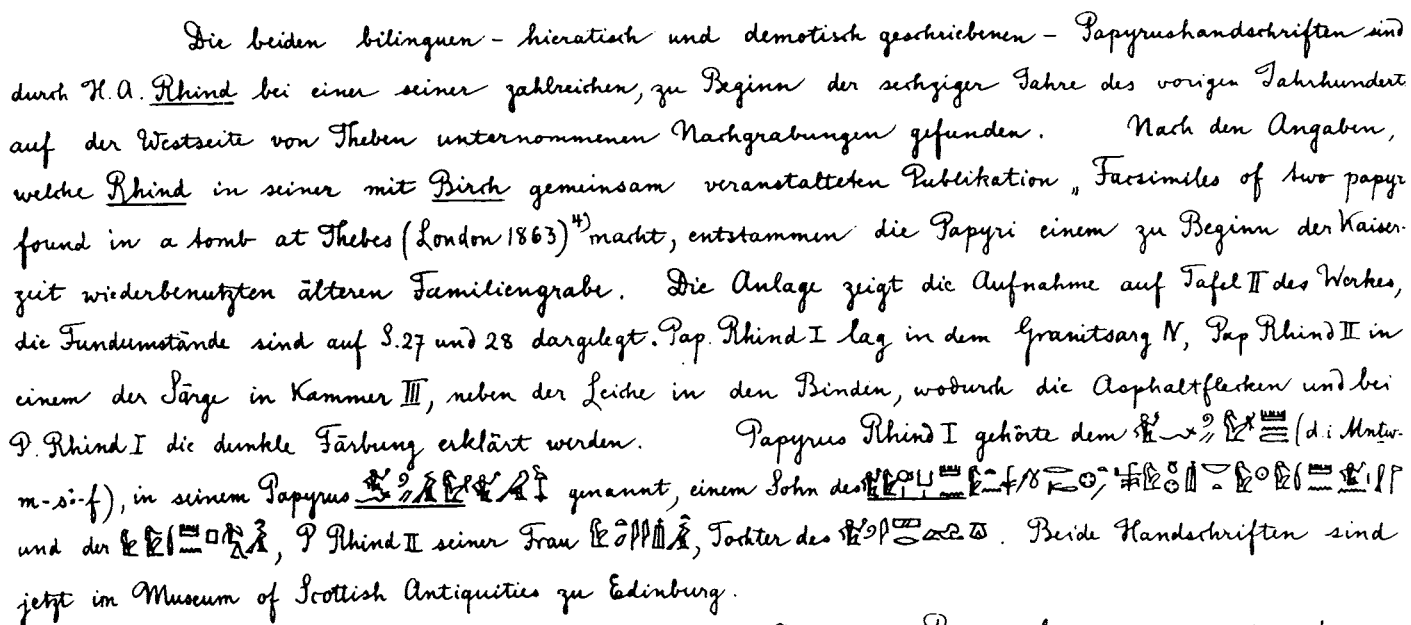 Die beiden bilinguen – hieratisch und demotisch geschriebenen – Papyrushandschriften sind
durch H. A. Rhind bei einer seiner zahlreichen, zu Beginn der sechziger Jahre des vorigen Jahrhundert
auf der Westseite von Theben unternommenen Nachgrabungen gefunden. Nach den Angaben,
welche Rhind in seiner mit Birch gemeinsam veranstalteten Publikation „Facsimiles of two papyr
found in a tomb at Thebes (London 1863)⁴⁾ macht, entstammen die Papyri einem zu Beginn der Kaiser-
zeit wiederbenutzten älteren Familiengrabe. Die Anlage zeigt die Aufnahme auf Tafel II des Werkes,
die Fundumstände sind auf S. 27 und 28 dargelegt. Pap. Rhind I lag in dem Granitsarg N, Pap Rhind II in
einem der Särge in Kammer III, neben der Leiche in den Binden, wodurch die Asphaltflecken und bei
P. Rhind I die dunkle Färbung erklärt werden. Papyrus Rhind I gehörte dem (d. i. Mntw-
m-s3-f), in seinem Papyrus genannt, einem Sohn des
und der , P Rhind II seiner Frau , Tochter des . Beide Handschriften sind
jetzt im Museum of Scottish Antiquities zu Edinburg.